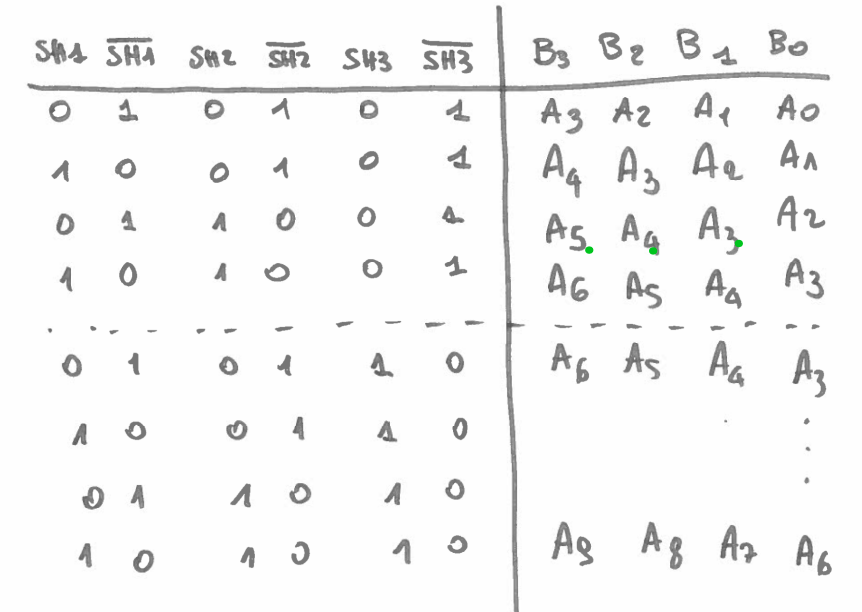 SH1 S̅H̅1̅ SH2 S̅H̅2̅ SH3 S̅H̅3̅ B₃ B₂ B₁ B₀
0 1 0 1 0 1 A₃ A₂ A₁ A0
1 0 0 1 0 1 A₄ A₃ A₂ A₁
0 1 1 0 0 1 A₅ A₄ A₃ A₂
1 0 1 0 0 1 A₆ A₅ A₄ A₃
0 1 0 1 1 0 A₆ A₅ A₄ A₃
1 0 0 1 1 0
0 1 1 0 1 0
1 0 1 0 1 0 A₉ A₈ A₇ A₆